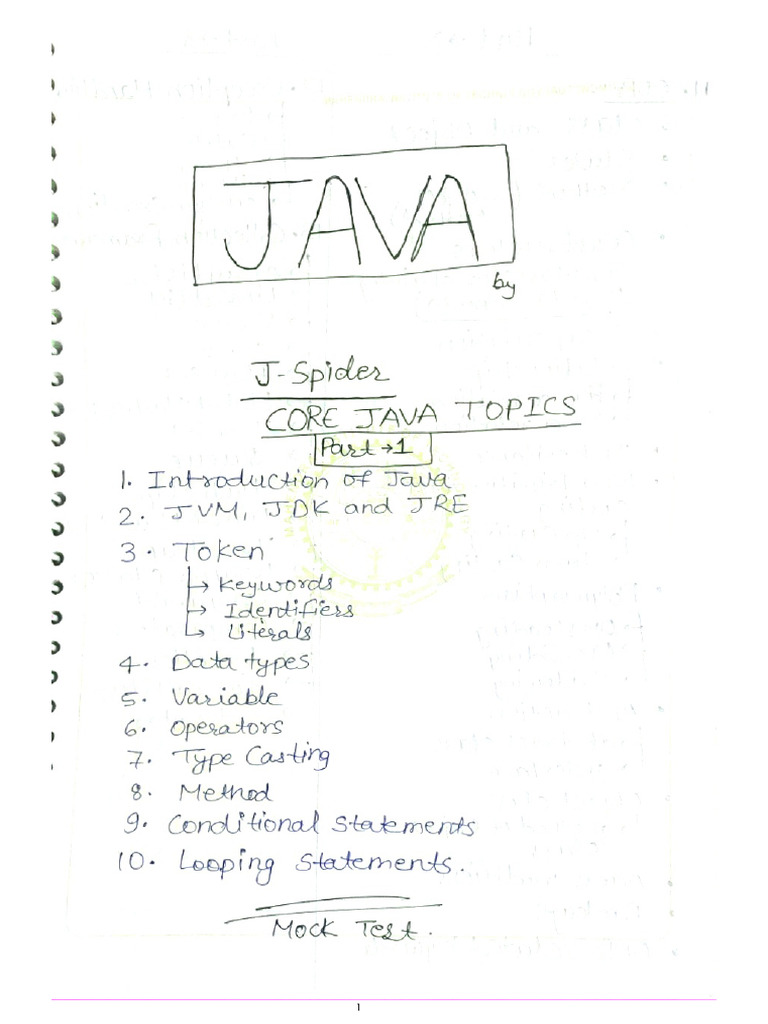 JAVA
by
J-Spider
CORE JAVA TOPICS
Part→1
1. Introduction of Java
2. JVM, JDK and JRE
3. Token
↳ Keywords
↳ Identifiers
↳ Literals
4. Data types
5. Variable
6. Operators
7. Type Casting
8. Method
9. Conditional Statements
10. Looping Statements.
Mock Test.
1